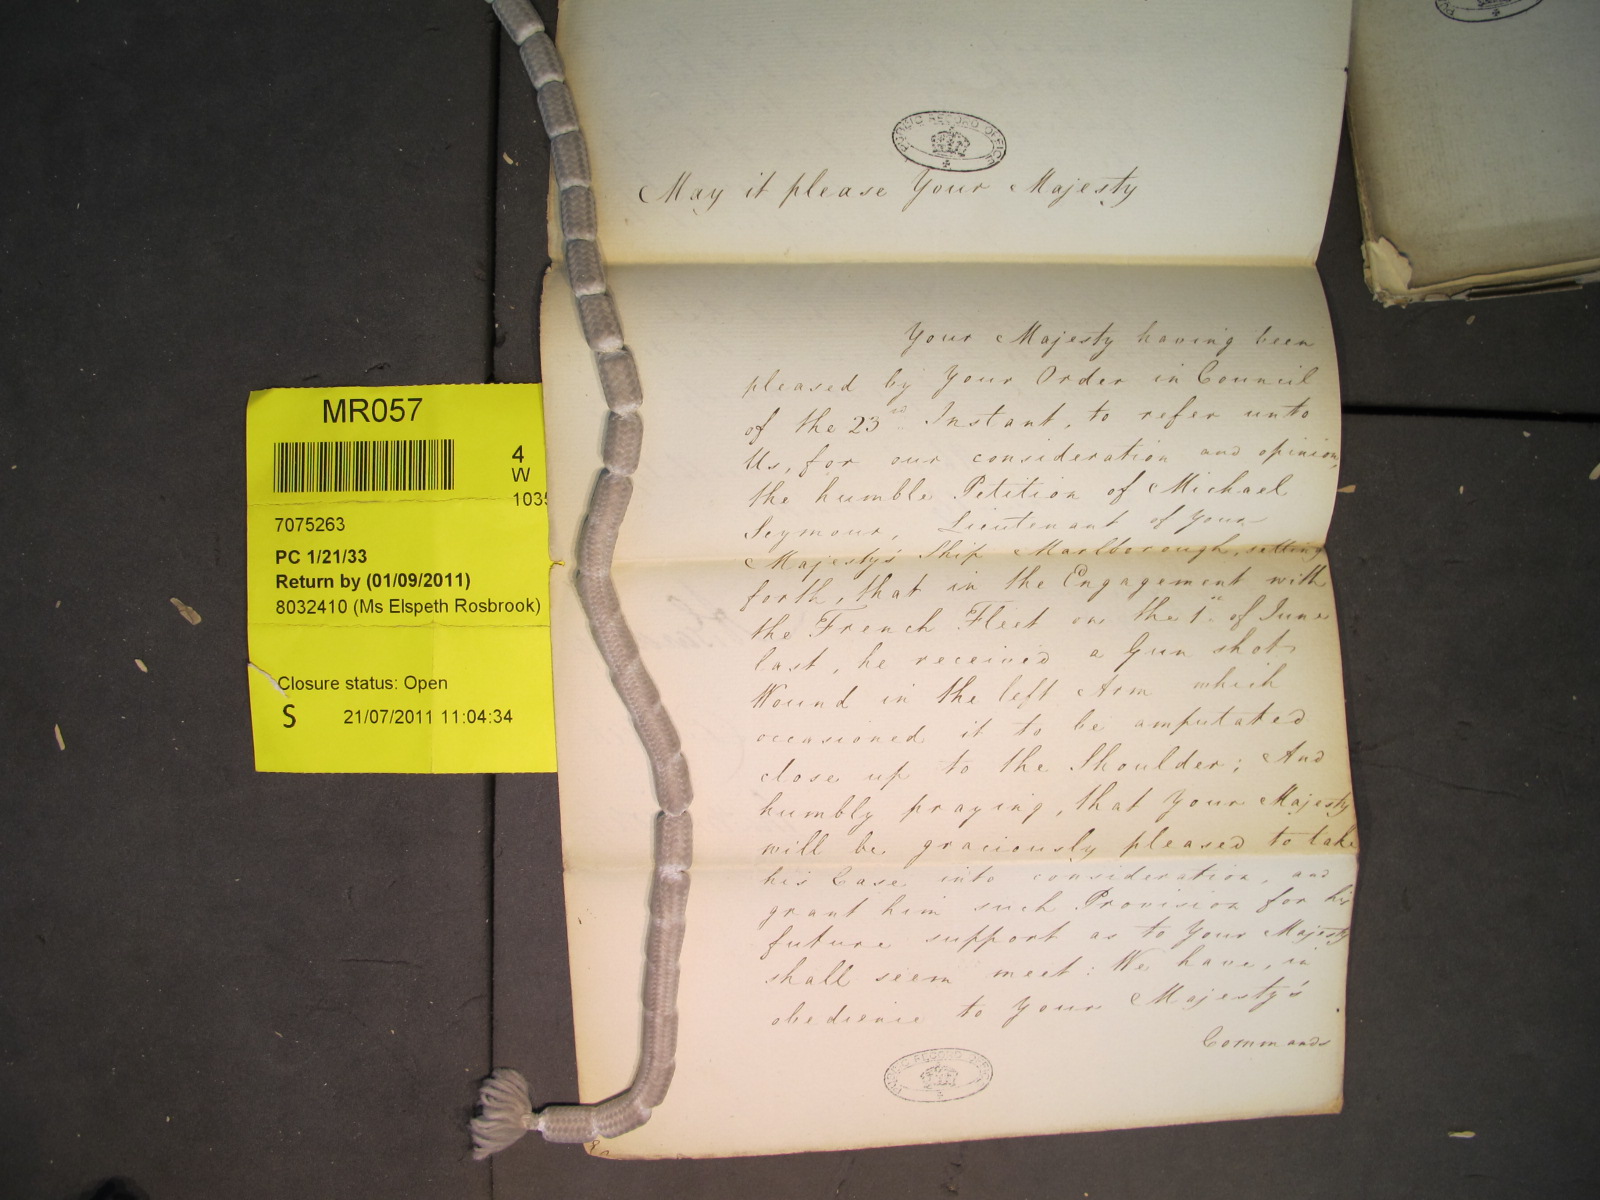 PUBLIC RECORD OFFICE
May it please Your Majesty
Your Majesty having been
pleased by Your Order in Council
of the 23rd Instant, to refer unto
Us, for our consideration and opinion,
the humble Petition of Michael
Seymour, Lieutenant of Your
Majesty's Ship Marlborough, setting
forth, that in the Engagement with
the French Fleet on the 1st of June
last, he received a Gun shot
Wound in the left Arm which
occasioned it to be amputated
close up to the Shoulder; And
humbly praying, that Your Majesty
will be graciously pleased to take
his Case into consideration, and
grant him such Provision for his
future support as to Your Majesty
shall seem meet: We have, in
obedience to Your Majesty's
Commands
PUBLIC RECORD OFFICE
MR057
4
W
1035
7075263
PC 1/21/33
Return by (01/09/2011)
8032410 (Ms Elspeth Rosbrook)
Closure status: Open
S 21/07/2011 11:04:34